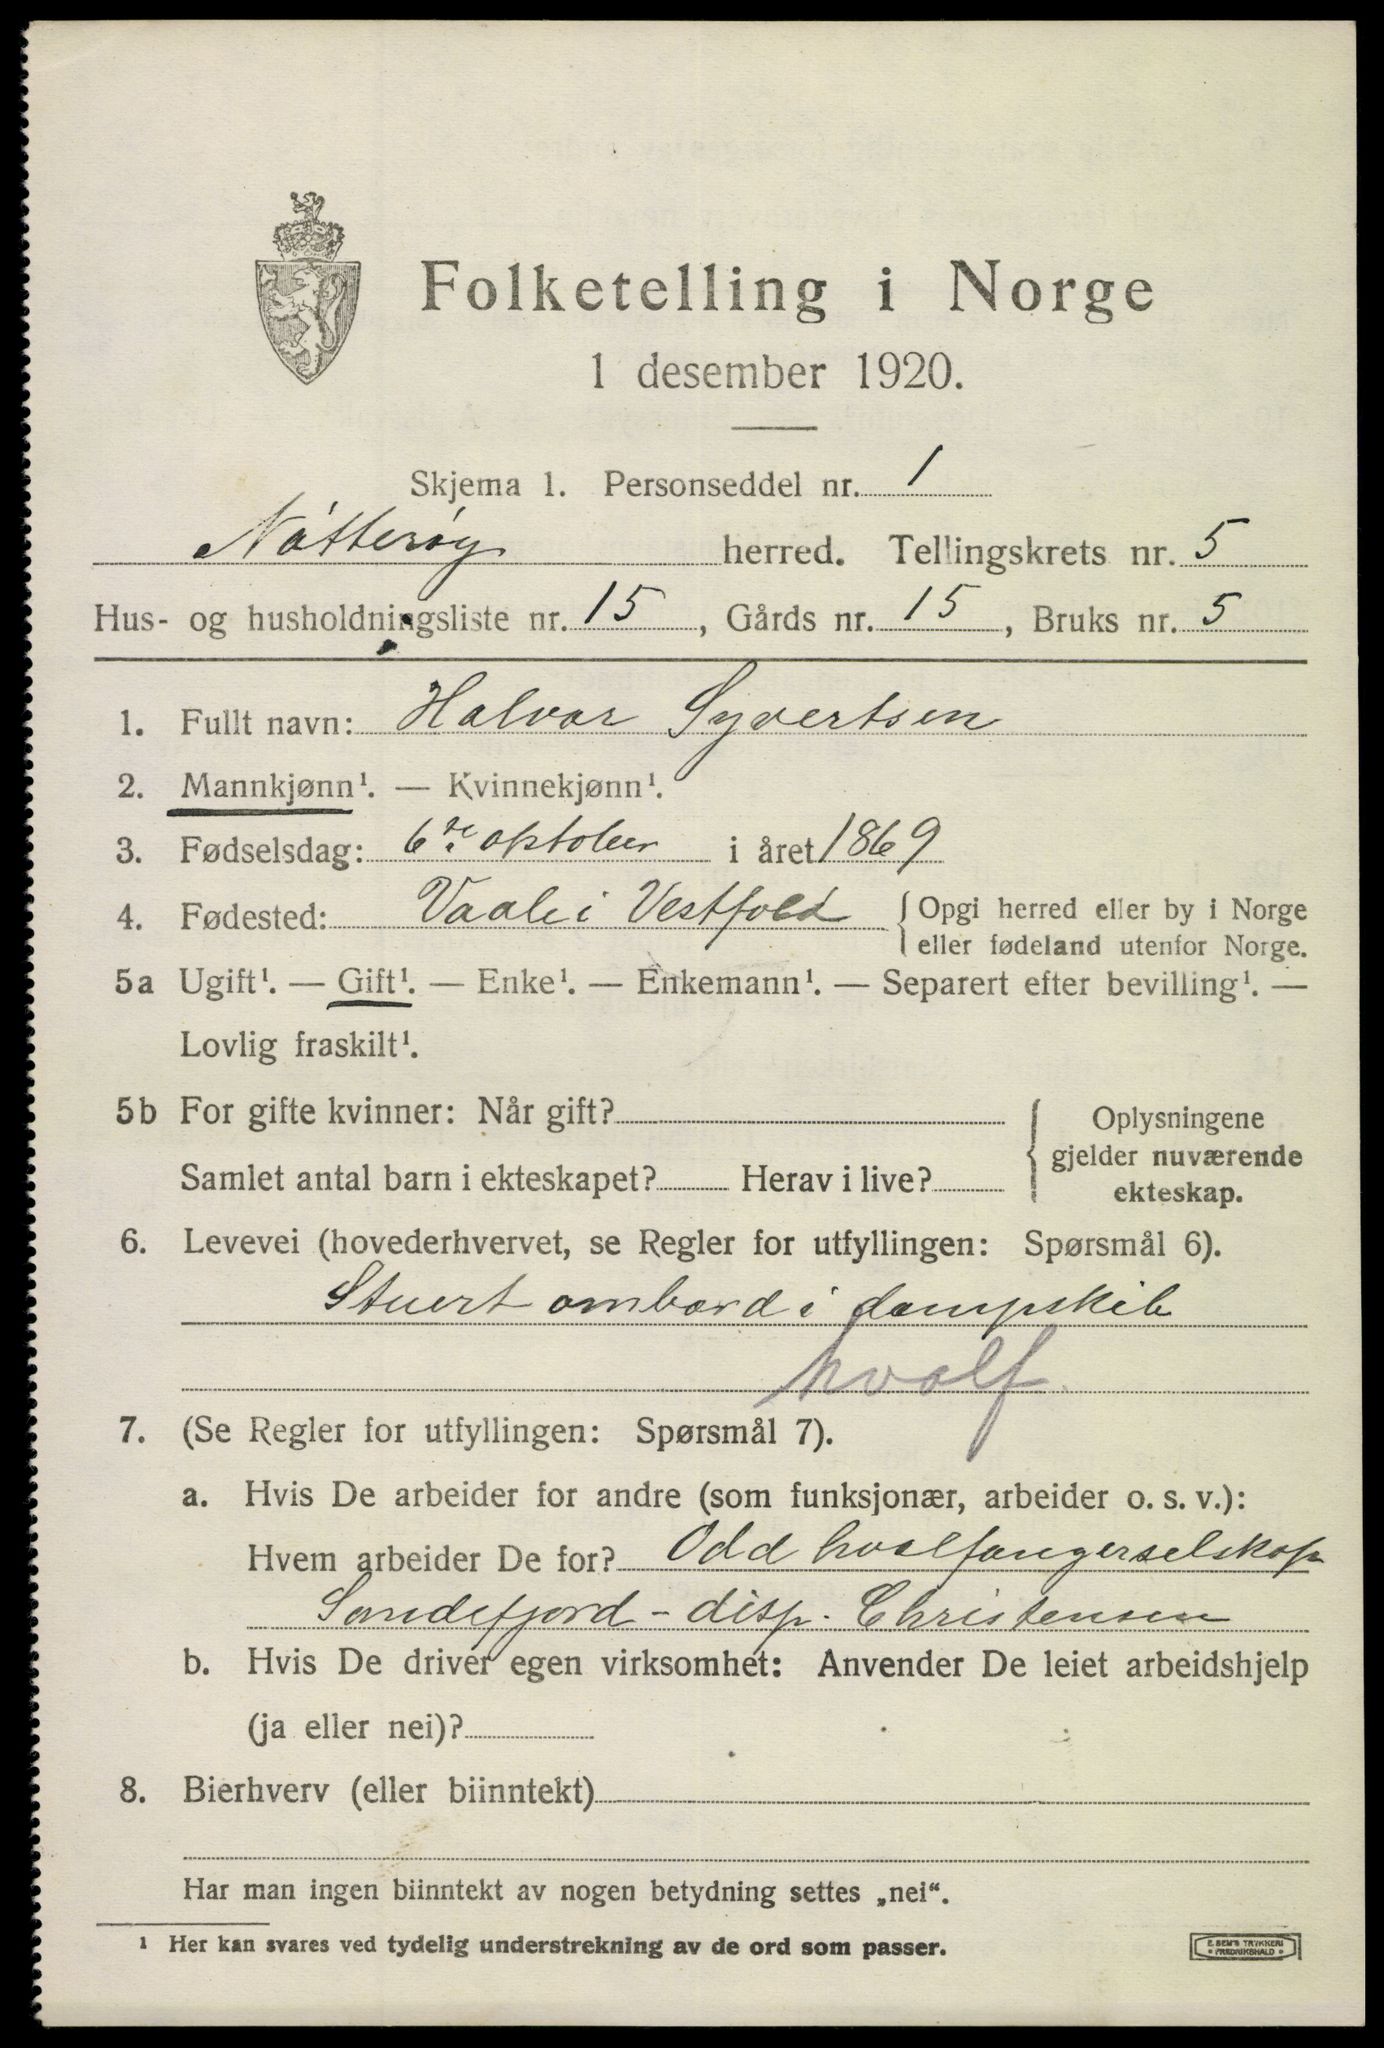 Folketelling i Norge
1 desember 1920.
Skjema 1. Personseddel nr. 1
Nøtterøy herred. Tellingskrets nr. 5
Hus- og husholdningsliste nr. 15, Gårds nr. 15, Bruks nr. 5
1. Fullt navn: Halvor Syvertsen
2. Mannkjønn¹. — Kvinnekjønn¹.
3. Fødselsdag: 6te oktober i året 1869
4. Fødested: Vaale i Vestfold { Opgi herred eller by i Norge
eller fødeland utenfor Norge.
5a Ugift¹. — Gift¹. — Enke¹. — Enkemann¹. — Separert efter bevilling¹. —
Lovlig fraskilt¹.
5b For gifte kvinner: Når gift?
Samlet antal barn i ekteskapet? Herav i live?
{ Oplysningene
gjelder nuværende
ekteskap.
6. Levevei (hovederhvervet, se Regler for utfyllingen: Spørsmål 6).
Stuert ombord i dampskib
hvalf.
7. (Se Regler for utfyllingen: Spørsmål 7).
a. Hvis De arbeider for andre (som funksjonær, arbeider o. s. v.):
Hvem arbeider De for? Odd hvalfangerselskap
Sandefjord - disp. Christensen
b. Hvis De driver egen virksomhet: Anvender De leiet arbeidshjelp
(ja eller nei)?
8. Bierhverv (eller biinntekt)
Har man ingen biinntekt av nogen betydning settes „nei“.
¹ Her kan svares ved tydelig understrekning av de ord som passer.
E. SEM'S TRYKKERI
• FREDRIKSHALD •